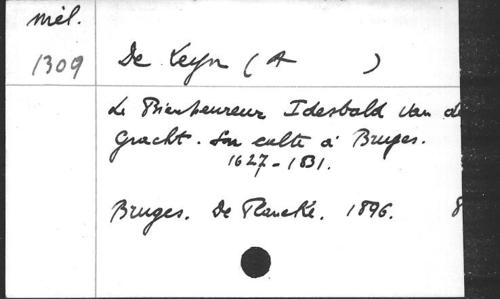 mél.
1309
De Keyn (A )
Le Bienheureux Idesbald van de
Gracht. Son culte à Bruges.
1627-1831.
Bruges. De Plancke. 1896. 8